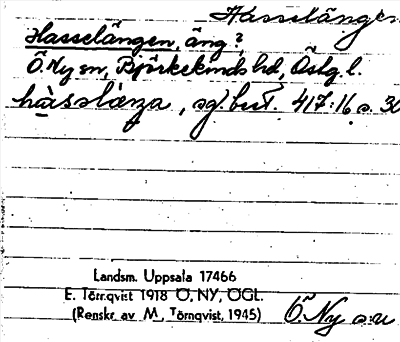 Hasselängen
Hasselängen, äng?,
Ö. Ny sn, Björkekinds hd, Östg. l.
sg. best. 417:16 s. 30
Landsm. Uppsala 17466
E. Törnqvist 1918 Ö. NY, ÖGL.
(Renskr. av M. Törnqvist, 1945)
Ö. Ny sn